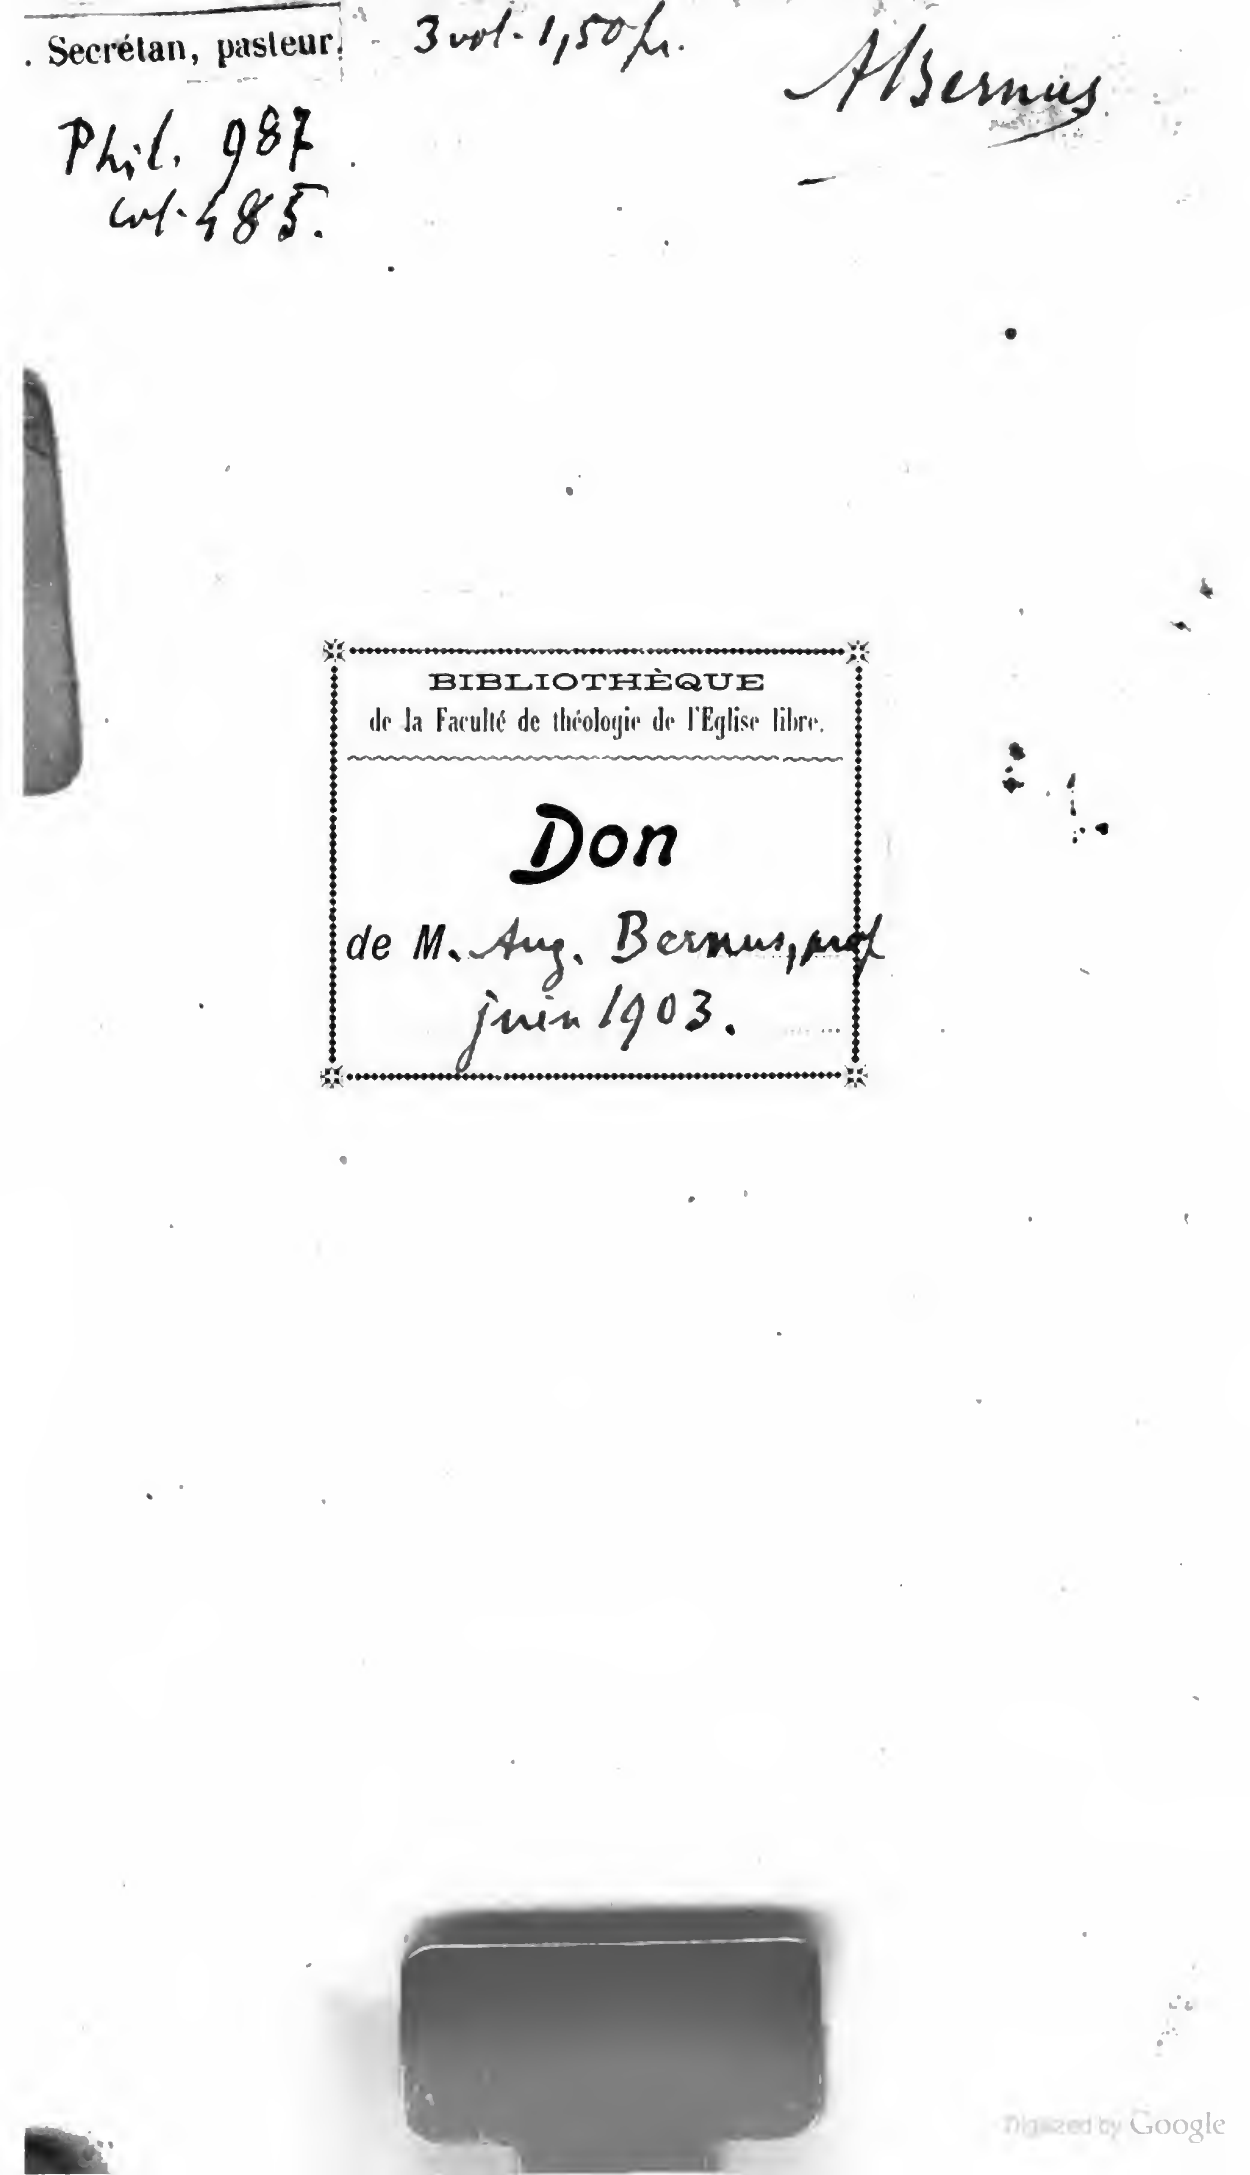 . Secrétan, pasteur.
3 vol. 1,50 fr.
ABernus
Phil. 987
col. 485.
BIBLIOTHÈQUE
de la Faculté de théologie de l'Eglise libre.
Don
de M. Aug. Bernus, prof
juin 1903.
Digitized by Google